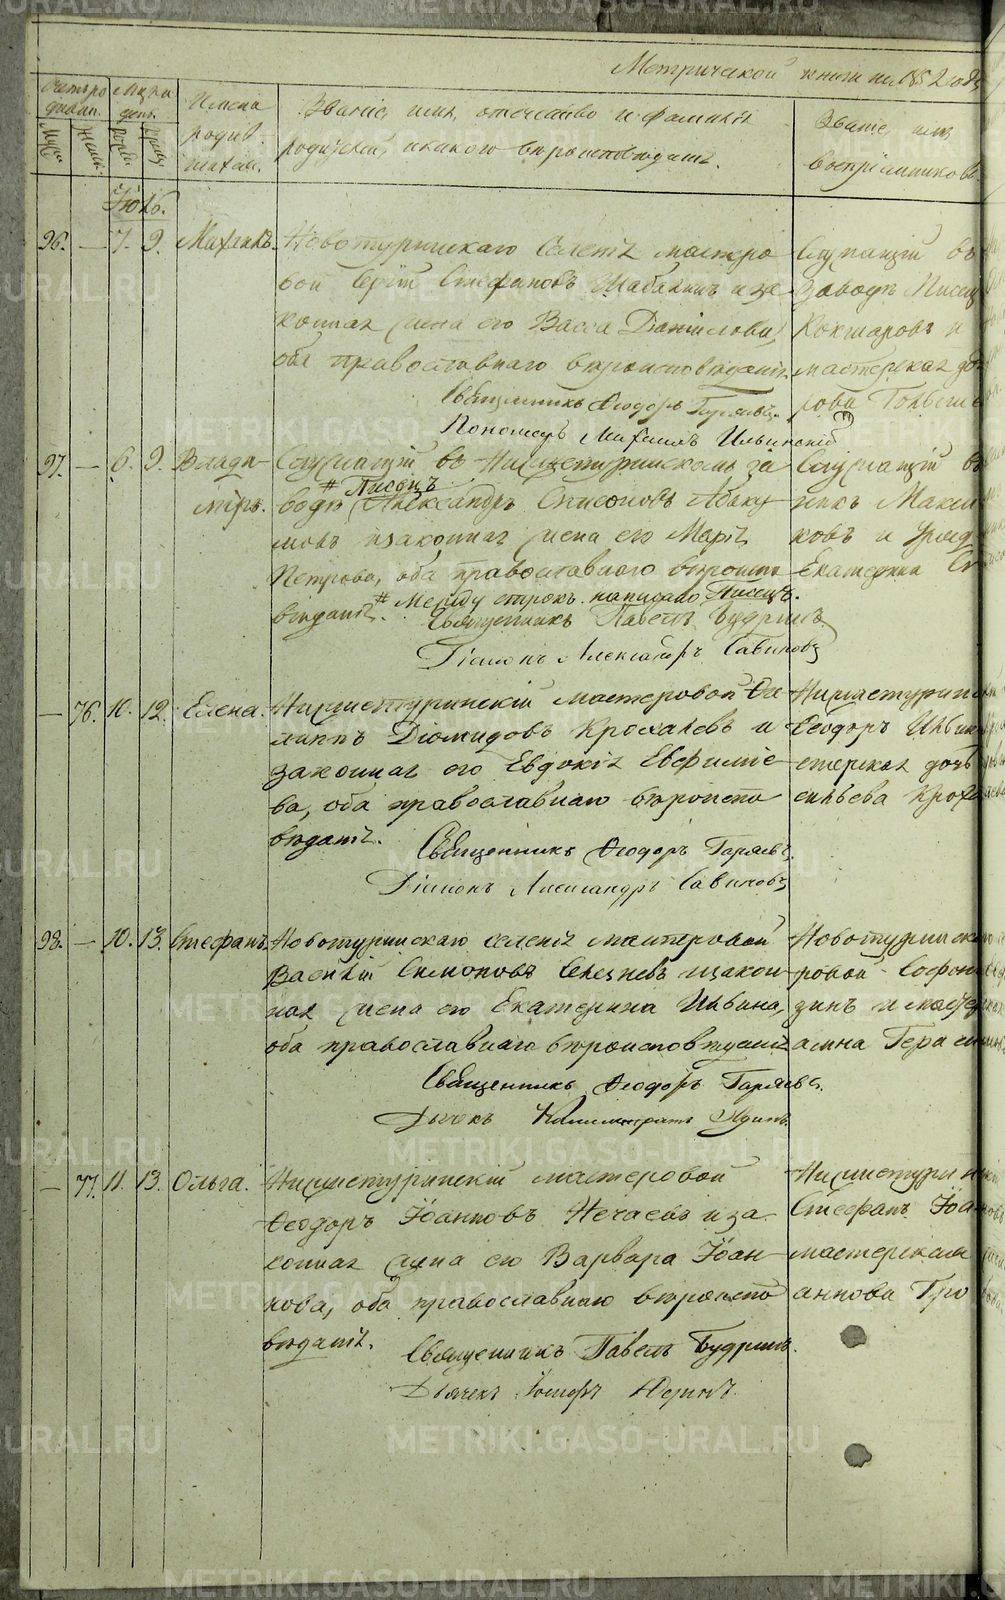 Метрической книги на 1852 годъ
Счетъ ро Мѣсяцъ
дивш. день.
Имена
родив
шихся.
Званіе, имя, отчество и фамилія
родителей, и какого вѣроисповѣданія.
Званіе, имя
воспріемниковъ
Муж. Жен. Рожд. Крещ.
Іюль.
96. — 7. 9. Новотуринскаго Селенія мастеро
вой Сергій Стефановъ Шабалинъ и за
конная жена его Васса Данилова,
оба православнаго вѣроисповѣданія.
Священникъ Ѳеодоръ Гаряевъ.
Пономарь Михаилъ Ильинскій
Служащій въ
заводѣ Писец
Кокшаровъ и
мастерская до
97. — 6. 9. Влади-
міръ.
Служащій въ Нижнетуринскомъ за
# Писецъ
водѣ Александръ Абаку
мовъ и законная жена его Марія
Петрова, оба православнаго вѣроиспо
вѣданія. # Между строкъ написано Писецъ.
Священникъ Павелъ Будринъ
Діаконъ Александръ Савиновъ
Служащій въ
ковъ и
Екатерина
— 76. 10. 12. Елена.
Нижнетуринскій мастеровой Фи
липпъ Діомидовъ Крохалевъ и
законная его Евдокія Евфиміе
ва, оба православнаго вѣроиспо
вѣданія.
Священникъ Ѳеодоръ Гаряевъ.
Діаконъ Александръ Савиновъ
Нижнетурин
Ѳеодоръ
стерская дочь
98. — 10. 13. Стефанъ.
Новотуринскаго селенія мастеровой
Василій Симоновъ Селезневъ и закон
ная жена его Екатерина Ильина,
оба православнаго вѣроисповѣданія
Священникъ Ѳеодоръ Гаряевъ.
Дьячекъ
Новотуринска
ровой Софон
динъ и мастер
— 77. 11. 13. Ольга.
Нижнетуринскій мастеровой
Ѳеодоръ Іоанновъ Нечаевъ и за
конная жена его Варвара Іоан
нова, оба православнаго вѣроиспо
вѣданія.
Священникъ Павелъ Будринъ.
Дьячекъ
Нижнетурин
Стефанъ Іоан
мастерская
аннова
METRIKI.GASO-URAL.RU